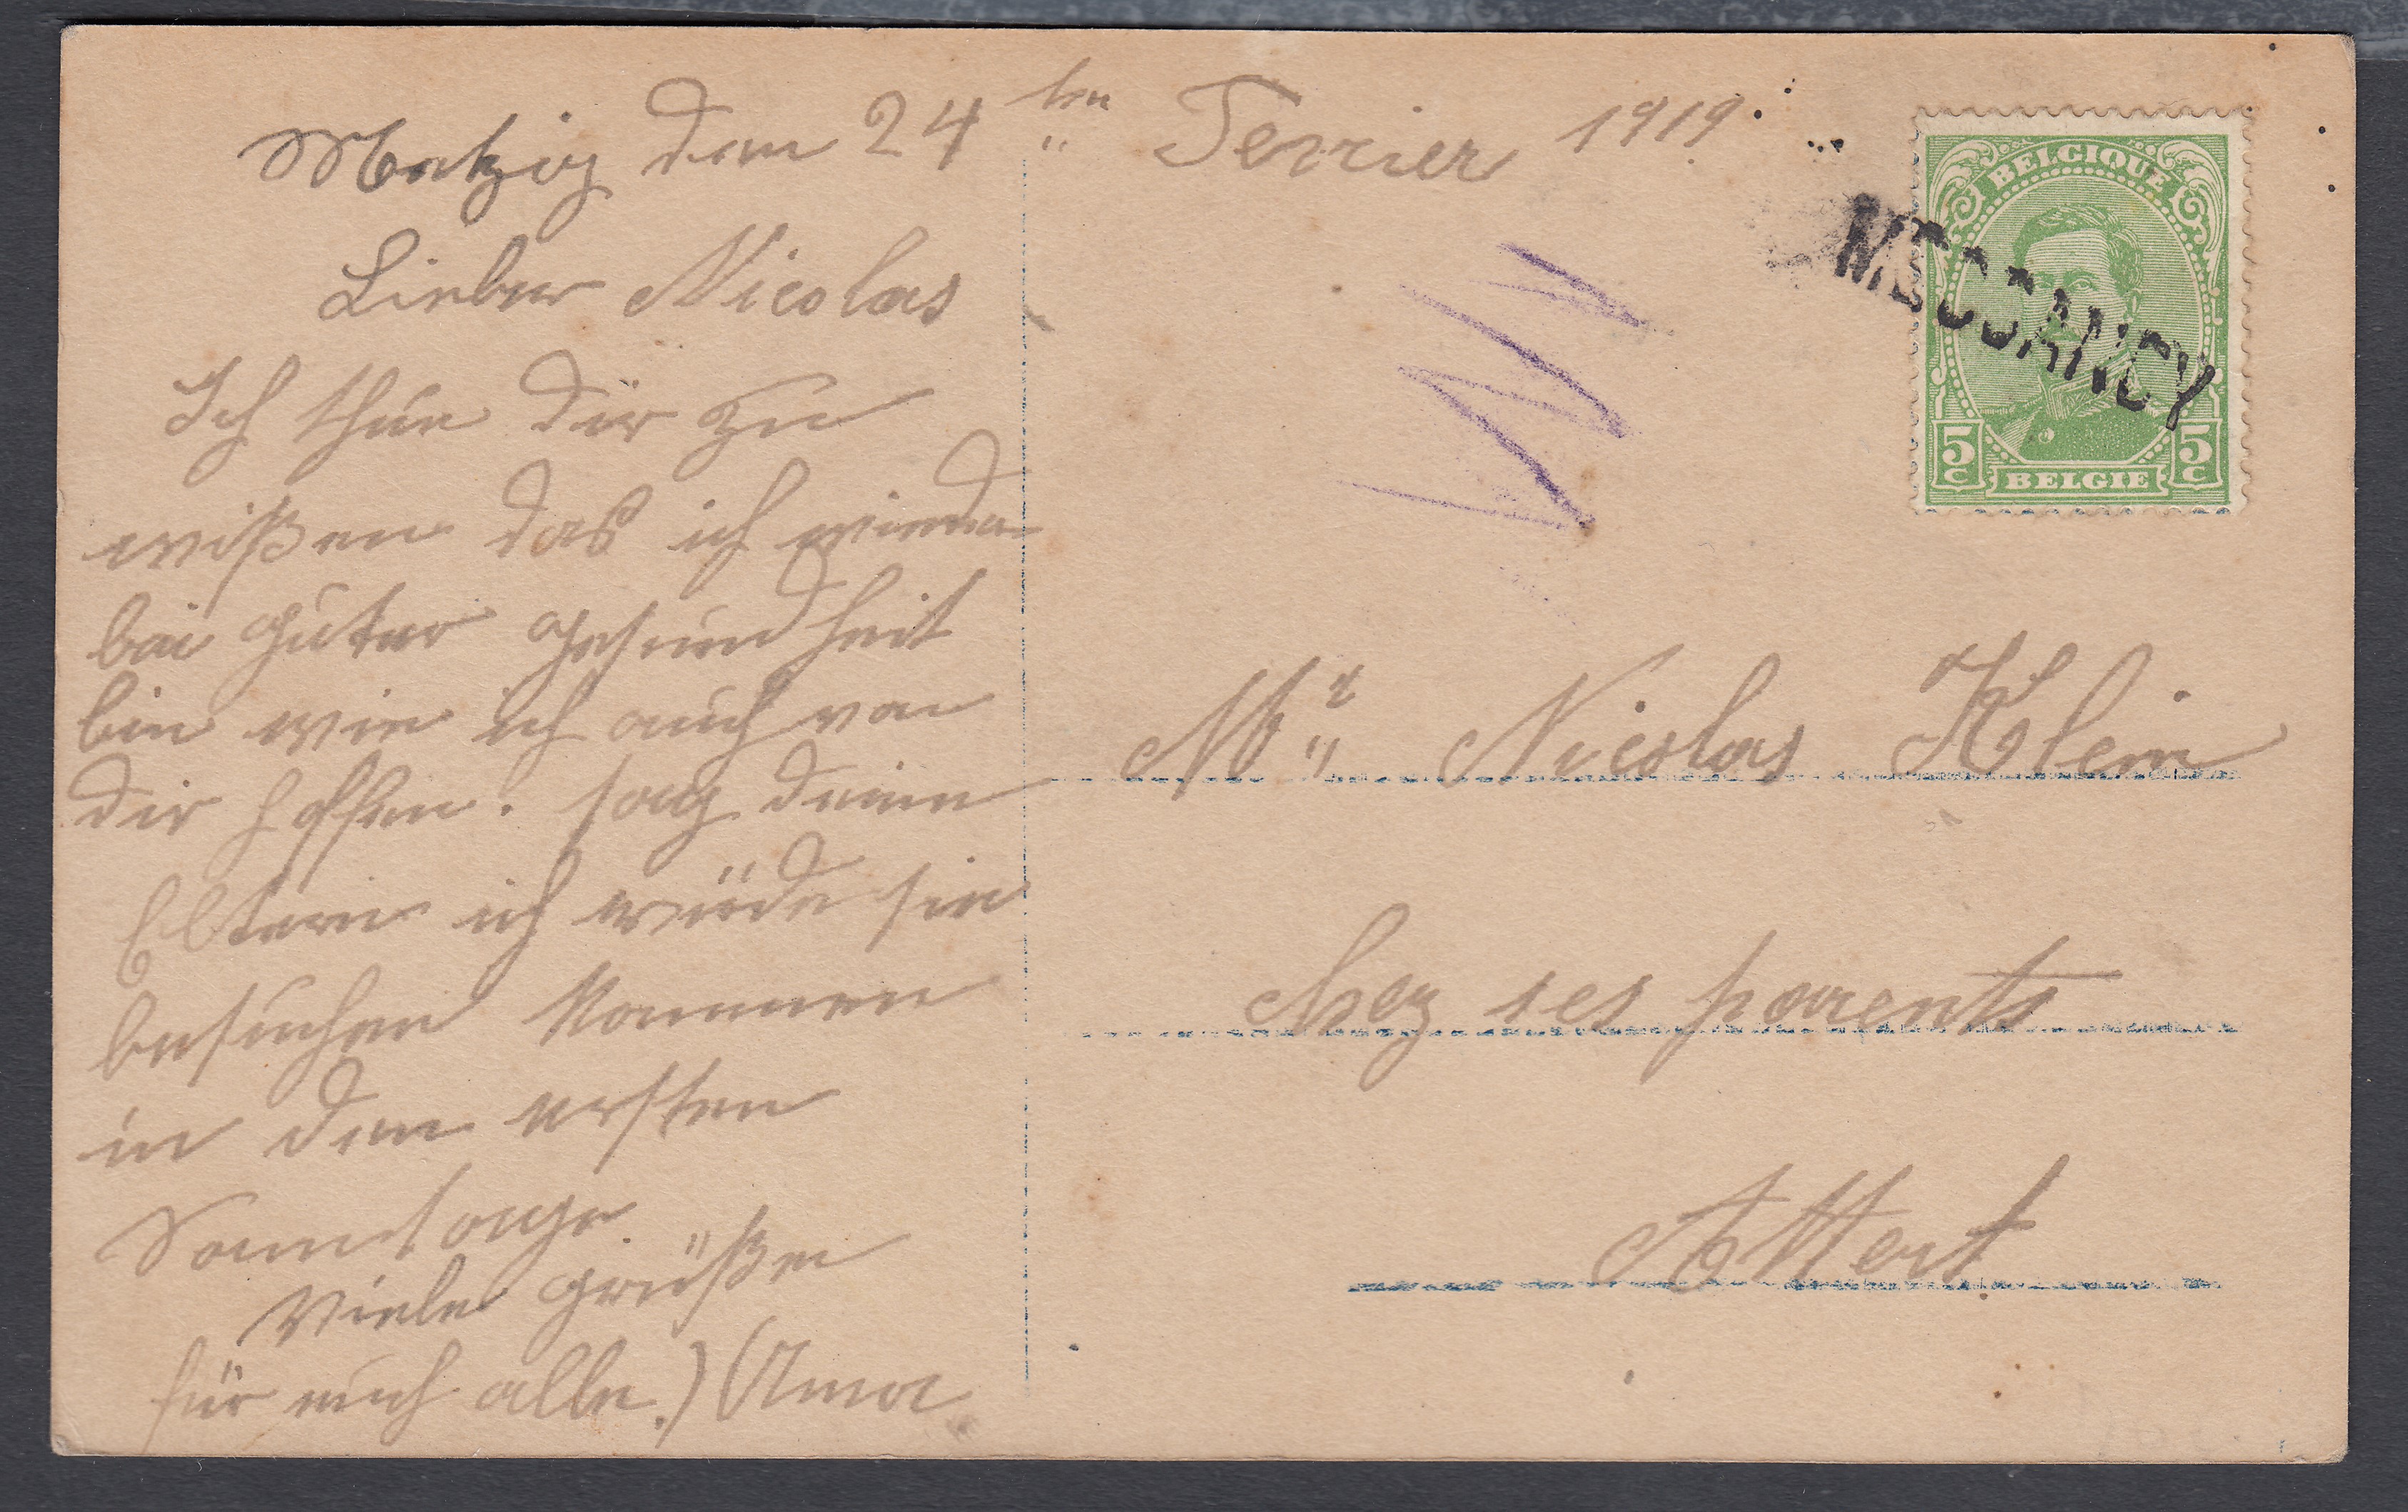 Metzig den 24ten Fevrier 1919.
Lieber Nicolas
Ich thue dir zu
wißen das ich wieder
bei guter gesundheit
bin wie ich auch von
dir hoffen. sag deine
Eltern ich würde sie
besuchen kommen
in den ersten
Sonntage.
Viele grüße
für euch alle.) Anna
BELGIQUE
5 C 5 C
BELGIE
MESSANCY
Mr Nicolas Klein
chez ses parents
Attert